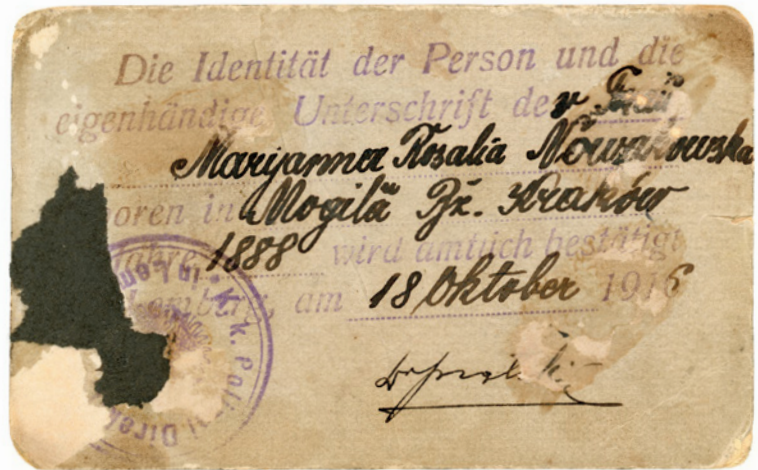 Die Identität der Person und die
eigenhändige Unterschrift der Frau
Maryanna Rosalia Nowakowska
boren in Mogila Bz. Kraków
Jahre 1888 wird amtlich bestätigt
Lemberg, am 18 Oktober 1916
K. k. Polizei Direk in Lem